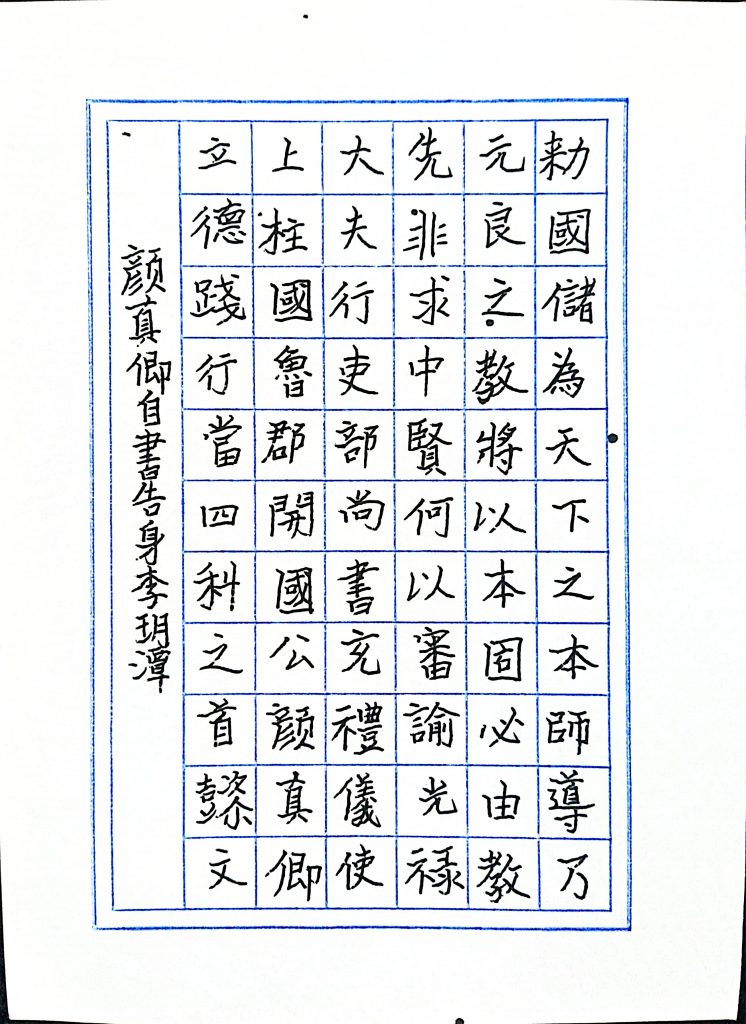 勑國儲為天下之本師導乃
元良之教將以本固必由教
先非求中賢何以審諭光禄
大夫行吏部尚書充禮儀使
上柱國魯郡開國公顔真卿
立德踐行當四科之首懿文
顔真卿自書告身李玥潭